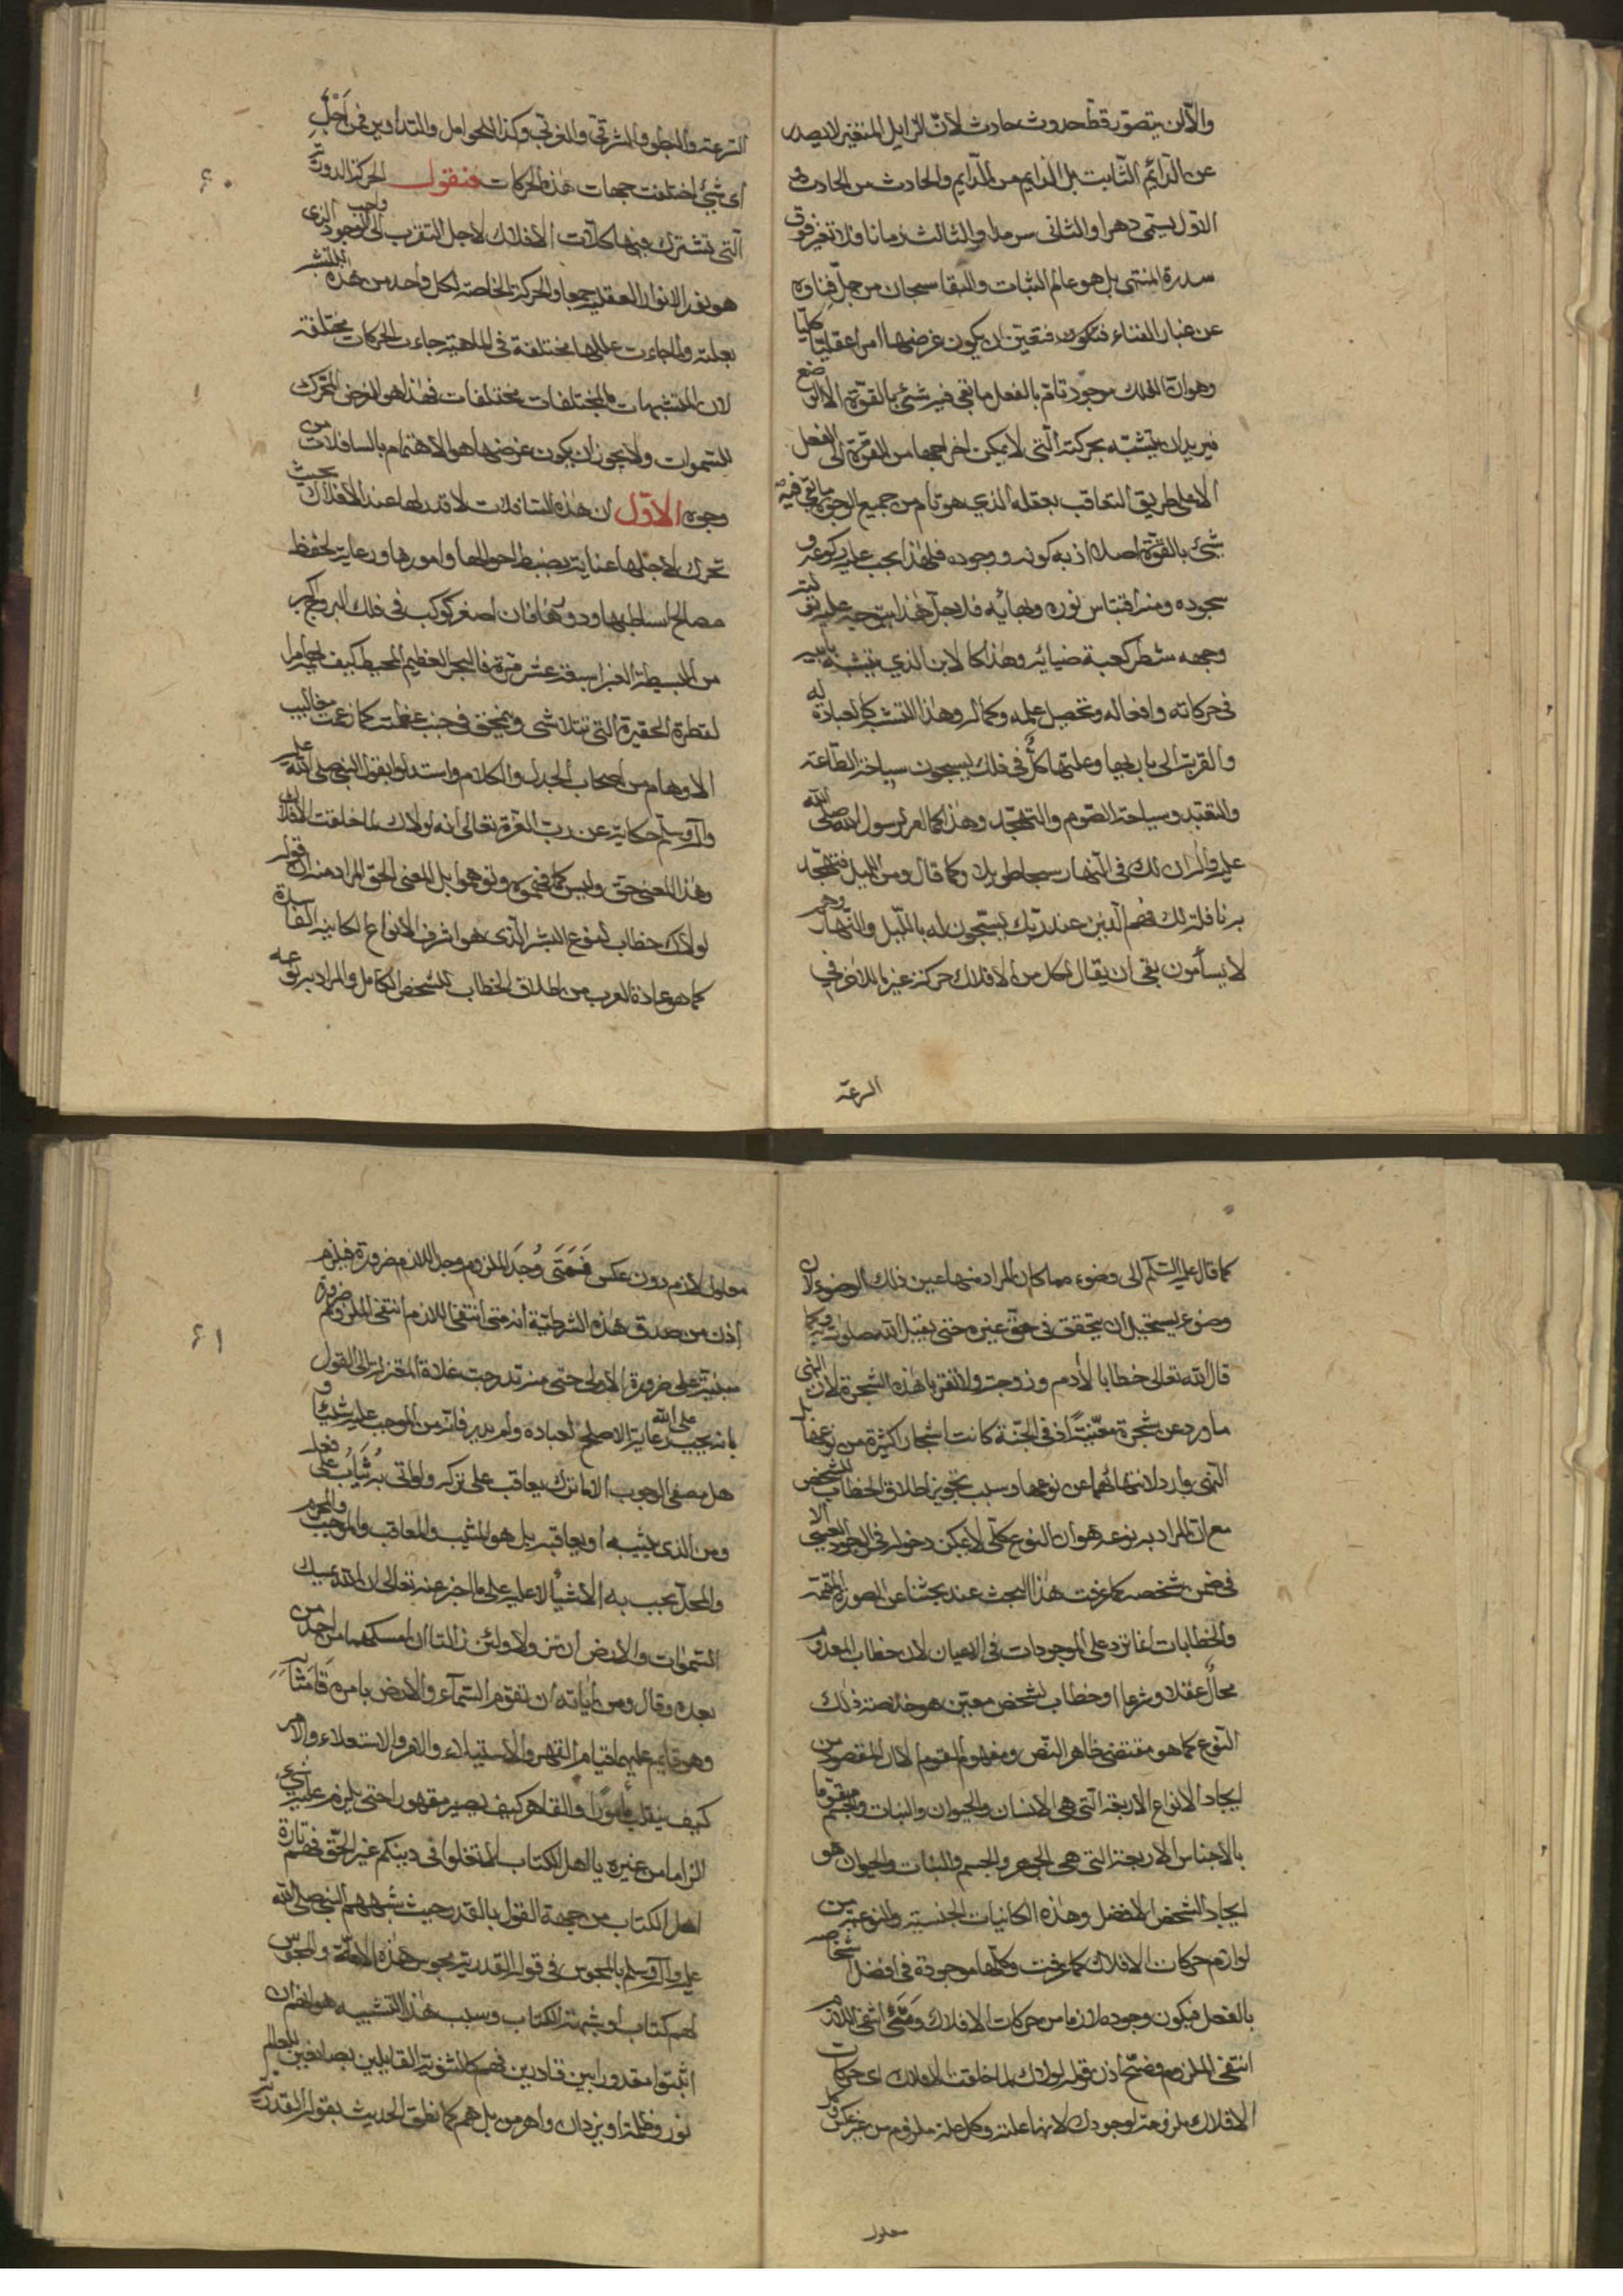 والّا لن يتصوّر قطّ حدوث حادث لأنّ الزايل المتغيّر لا يصدر
عن الدّائم الثّابت بل الدايم من الدّايم والحادث من الحادث
الاوّل يسمّى دهرا والثانى سرمدا والثالث زمانا فلا تغيّر فوق
سدرة المنتهى بل هو عالم الثبات والبقا سبحان من جلّ فناؤه
عن غبار الفناء فتعيّن ان يكون غرضها امرا عقليّا كليّا
وهو ان الفلك موجود تامّ بالفعل ما بقى فيه شئ بالقوّة الا الوضع
فيريد ان يتشبّه بحركته الّتى لا يمكن اخراجها من القوّة الى الفعل
الا على طريق التعاقب بعقله الذى هو تام من جميع الوجوه ما بقى فيه
شئ بالقوّة اصلا اذ به كونه ووجوده فلهذا يجب عليه ركوعه و
سجوده ومنه اقتباس نوره وبهائه
وجهه شطر كعبة ضيائه وهذا كالابن الذي يتشبه بأبيه
فى حركاته وافعاله وتحصيل علمه وكماله وهذا التشبه كالعبادة له
والقربة الى باريها وعلتها كلٌّ فى فلك يسبحون سباحة الطّاعة
والتعبّد وسياحة الصّوم والتهجّد وهذا كما امر لرسول الله صلى الله
عليه واله ان لك فى النّهار سبحا طويلا وكما قال ومن الليل فتهجّد
به نافلة لك فهم الّذين عند ربّك يسبّحون له بالليل والنّهار وهم
لا يسأمون بقى ان يقال لكل من الافلاك حركة غير ما للاخر فى
السرعة
السّرعة والبطؤ والشرقى والغربى وكذا الحوامل والتداوير فمن اَجْلِ
اى شئ اختلفت جهات هذه الحركات فنقول الحركة الدورية
الّتى تشترك فيها كلّيات الافلاك لاجل التقرب الى واجب الوجود الذى
هو نور الانوار العقلية جميعا والحركة الخاصة لكل واحد من هذه للتشبه
بعلته ولما جاءت عللها مختلفة فى الماهية جاءت الحركات مختلفة
لان المتشبهات بالمختلفات مختلفات فهذا هو الغرض المحرك
للسموات ولا يجوز ان يكون غرضها هو الاهتمام بالسافلات من
وجوه الاوّل ان هذه السافلات لا قدر لها عند الافلاك بحيث
تحرك لاجلها عناية بضبط احوالها وامورها ورعاية لحفظ
مصالح فان اصغر كوكب فى فلك البروج اكبر
من البسيطة الغبرا سبعة عشر مرّة فالبحر العظيم المحيط كيف
لقطرة الحقيرة التى تتلاشى وينمحق فى جنب عظمته كما زعمت مخاليب
الاوهام من اصحاب الجدل والكلام واستدلوا بقول النبى صلى الله عليه
وآله وسلّم حكاية عن ربّ العزة تعالى انه لولاك لما خلقت الافلاك
وهذا المعنى حق وليس كما فهموه وتوهموا بل المعنى الحق المراد منه ان قوله
لولاك خطاب لنوع البشر الّذى هو اشرف الأنواع الكاينة الفاسدة
كما هو عادة العرب من اطلاق الخطاب للشخص الكامل والمراد به نوعه
٦٠
كما قال عليه السّلام الى وضوء مما كان المراد منها عين ذلك الوضوء لان
وضوء يستحيل ان يتحقق فى حق غيره حتى يقبل الله صلوته به وكما
قال الله تعالى خطابا لأدم وزوجته ولا تقربا هذه الشجرة لان النهى
ما ورد عن شجرة معيّنةً اذ فى الجنّة كانت اشجار كثيرة من نوعها بل
النهى وارد لانتهائهما عن نوعها وسبب تجويز اطلاق الخطاب للشخص
مع انّ المراد به نوعه هو ان النوع كلّى لا يمكن دخوله فى الوجود العينى الا
فى ضمن شخصه كما عرفت هذا البحث عند بحثنا عن الصورة المتممة
والخطابات انما ترد على الموجودات فى الاعيان لان خطاب المعدوم
محالٌ عقلا وشرعا او خطاب لشخص معيّن هو خلاصة ذلك
النّوع كما هو مقتضى ظاهر النّص ومفهوم القوم لان المقصود من
ايجاد الانواع الاربعة الّتى هى الأنسان والحيوان والنبات والجسم متقوّما
بالأجناس الاربعة التى هى الجوهر والجسم والنبات والحيوان هو
ايجاد الشخص الافضل وهذه الكائنات الجنسية والنوعية من
لوازم حركات الافلاك كما عرفت وكلّها موجودة فى افضل اشخاصه
بالفعل فيكون وجوده لازما من حركات الافلاك وَمَتَى انتفى اللازم
انتفى الملزوم فصحّ اذن قوله لولاك لما خلقت الافلاك اى حركات
الافلاك ملزومة لوجودك لانها علته وكل علة ملزوم من غير عكس وكل
معلول
معلول لازم دون عكس فَمَتَى وُجَدَ الملزوم وجد اللازم ضرورة فيلزم
اذن من صدق هذه الشرطيّة انه متى انتفى اللازم انتفى الملزوم ضرورة
مبنيّة على ضرورة الأولى حتى منه تدرجت غلاة المعتزلة الى القول
بانه يجب على الله رعاية الاصلح لعباده ولم يدر فانّه من الموجب عليه شيئا و
هل معنى الوجوب الا ما ترك يعاقب على تركه ولو اتى به يُثَابُ على فعله
ومن الذى يثيبه او يعاقبه بل هو المثيب والمعاقب والموجب والمحرم
والمحلّ يجب به الأشياء لا عليه على ما اخبر عنه تعالى ان الله يمسك
السّموات والارض ان تزولا ولئن زالتا ان امسكهما من احد من
بعده وقال ومن أياته ان تقوم السّمآء والأرض بامره
وهو قايم عليهما قيام القهر والأستيلاء والامر والاستعلاء والامر
كيف ينقلب مأمورًا والقاهر كيف يصير مقهورا حتى يلزم عليه شىء
الزاما من غيره يا اهل الكتاب لا تغلوا فى دينكم غير الحّق فهم تارة
اهل الكتاب من جهة القول بالقدر حيث شبههم النبى صلى الله
عليه وآله وسلم بالمجوس فى قوله القدرية مجوس هذه الأمّة والمجوس
لهم كتاب او شبهة الكتاب وسبب هذا التشبيه هو انهم
اثبتوا مقدورا بين قادرين فهم كالثنوية القايلين بصانعين للعالم
نور وظلمة او يزدان واهرمن بل هم كما نطق الحديث بقوله القدرية
٦١